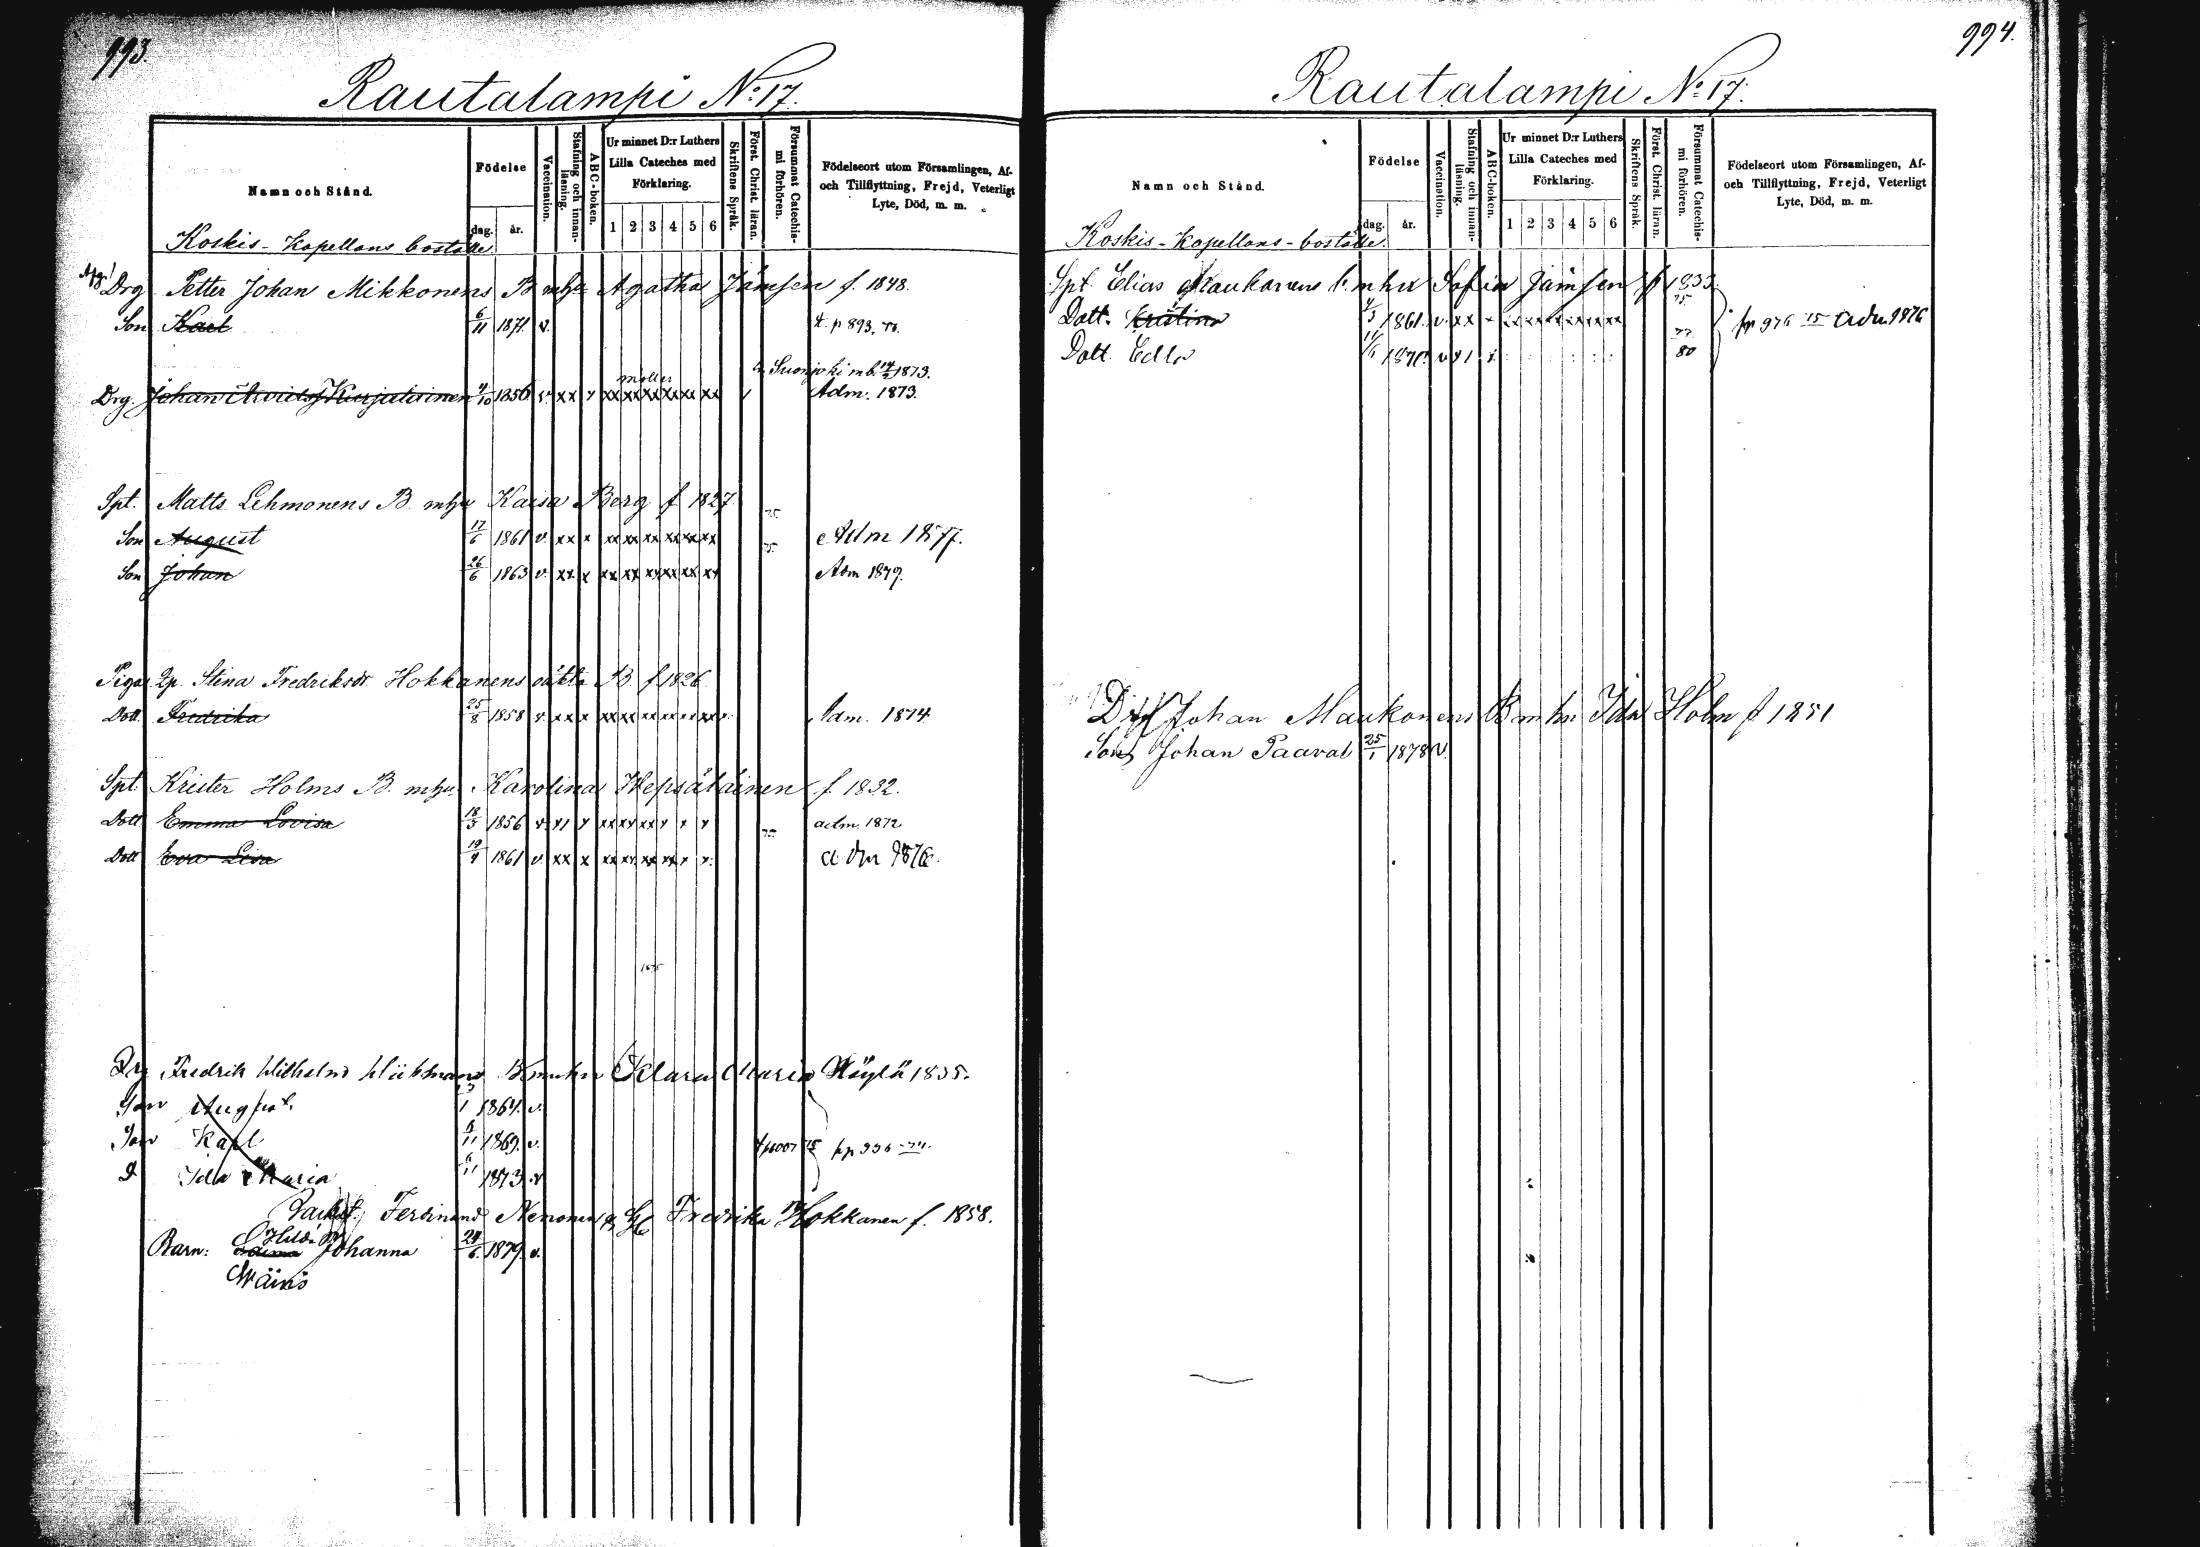 993.
Rautalampi No 17.
Namn och Stånd.
Födelse
dag. år.
Vaccination.
Stafning och innanläsning.
ABC-boken.
Ur minnet D:r Luthers Lilla Cateches med Förklaring.
1 2 3 4 5 6
Skriftens Språk.
Först. Christ. läran.
Försummat Catechismi förhören.
Födelseort utom Församlingen, Af- och Tillflyttning, Frejd, Veterligt Lyte, Död, m. m.
Koskis-Kapellans boställe
Drg Petter Johan Mikkonens B mhu Agatha Jämsen f. 1848.
Son Karl 6/11 1871. v. p 893.
Suonjoki mb. 1873.
Drg. Johan 4/10 1856 v. xx x xx xx xx xx xx xx Adm. 1873.
Spt. Matts Lehmonens B. mhu Kaisa Berg f 1827.
Son August 17/6 1861 v. xx x xx xx xx xx xx xx 75 Adm 1877.
Son Johan 26/6 1863 v. xx x xx xx xx xx xx xx 75 Adm 1879.
Piga Qp. Stina Fredriksdr Hokkanens oäkta B f 1826
Dott. Fredrika 25/8 1858 v. xx x xx xx xx xx xx Adm. 1874
Spt. Krister Holms B. mhu. Karolina Hepsäläinen f. 1832.
Dott. Emma Lovisa 18/3 1856 v. adm. 1872
Dott Eva Lisa 19/9 1861 v. xx x xx xx xx xx x x 75 adm 1876.
1875
Drg Fredrik Wilhelm B mhu Klara Maria Höylä 1835.
Son August. 1 1864. v.
Son Karl 11 1869. v. pp 996
D Ida Maria 11 1873 v
Ferdinand Nenonen & H Fredrika Hokkanen f. 1858.
Barn: Hilda Johanna 24/6. 1879. v.
Wäinö
994.
Rautalampi No 17.
Namn och Stånd.
Födelse
dag. år.
Vaccination.
Stafning och innanläsning.
ABC-boken.
Ur minnet D:r Luthers Lilla Cateches med Förklaring.
1 2 3 4 5 6
Skriftens Språk.
Först. Christ. läran.
Försummat Catechismi förhören.
Födelseort utom Församlingen, Af- och Tillflyttning, Frejd, Veterligt Lyte, Död, m. m.
Koskis-Kapellans-boställe.
Spt Elias Maukonens b. mhu Sofia Jämsen f 1833.
Dott. Kristina 1861. v. xx x xx xx xx xx xx xx 75 976 75 Adm. 1876
Dott. Edla 1870. v 77 80
Johan Maukonens B mhu Ida Holm f 1851
Son Johan Paaval 25/1 1878 v.